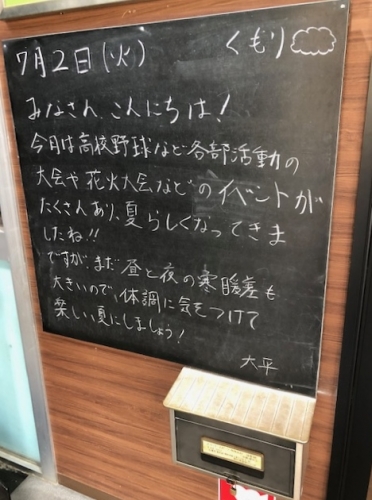 7月2日(火) くもり
みなさん、こんにちは!
今月は高校野球など各部活動の
大会や花火大会などのイベントが
たくさんあり、夏らしくなってきま
したね!!
ですが、まだ昼と夜の寒暖差も
大きいので、体調に気をつけて
楽しい夏にしましょう!
大平